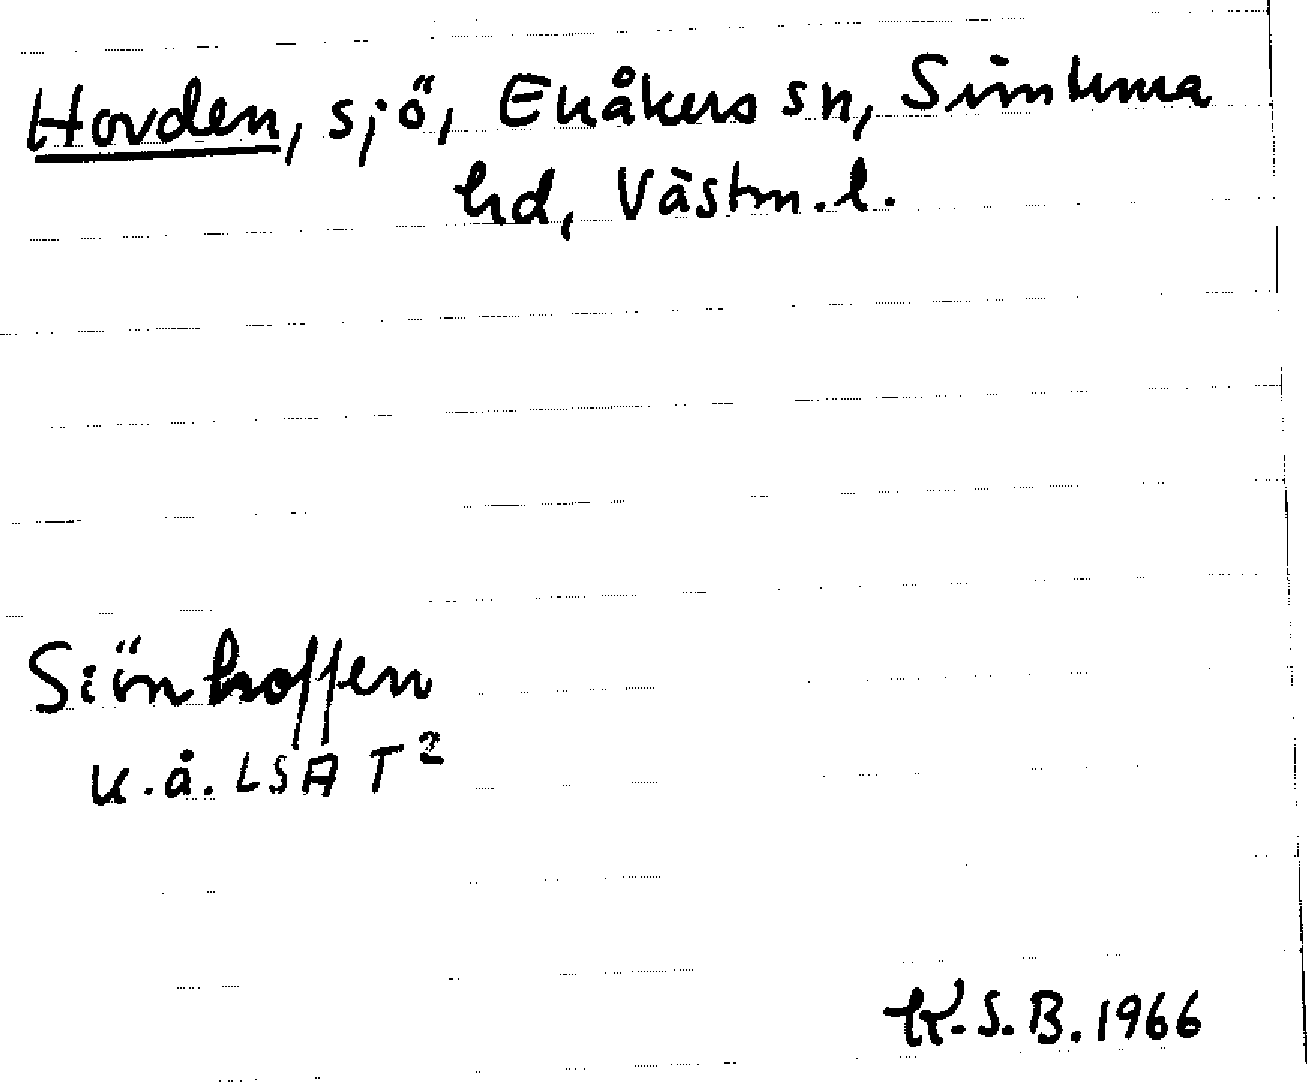 Hovden, sjö, Enåkers sn, Simtuna
hd, Västm. l.
Siön hoffen
u. å. LSA T²
K.S.B. 1966